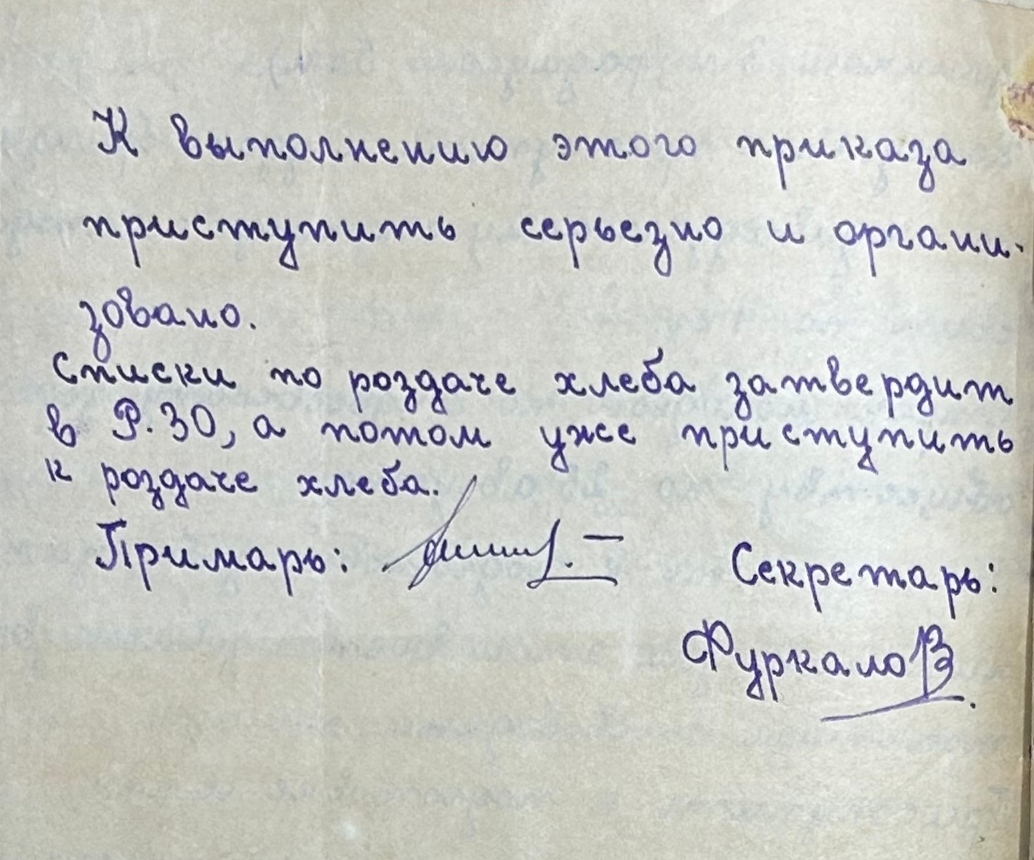 К выполнению этого приказа
приступить серьезно и органи-
зовано.
Списки по роздаче хлеба затвердит
в Р.ЗО, а потом уже приступить
к роздаче хлеба.
Примарь: Секретарь:
Фуркало В